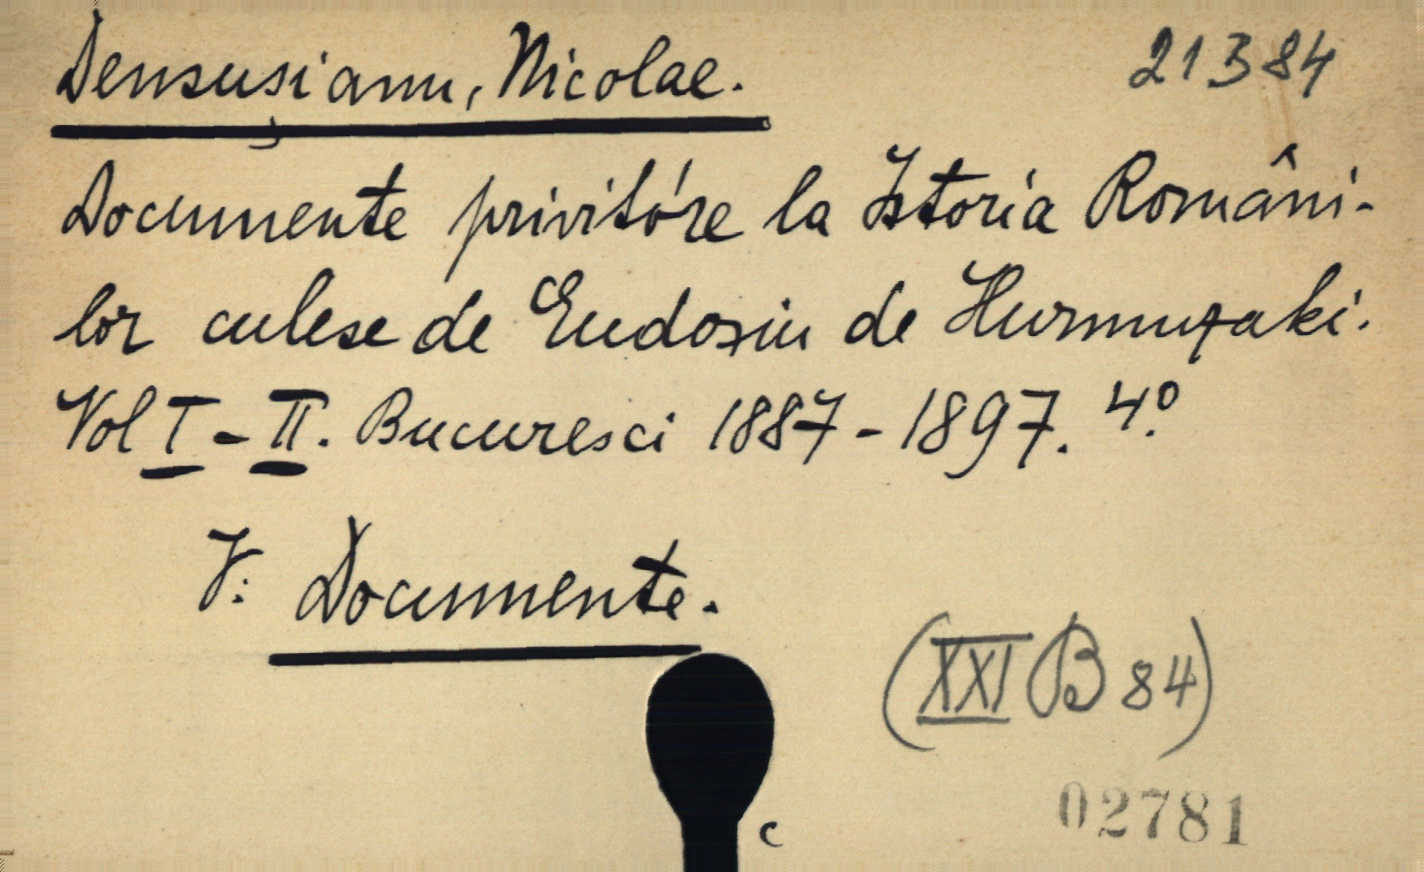 Densușianu, Nicolae.
21384
Documente privitóre la Istoria Români-
lor culese de Eudoxiu de Hurmuzaki.
Vol I - II. Bucuresci 1887 - 1897. 4º.
V: Documente.
(XXI B 84)
02781
c